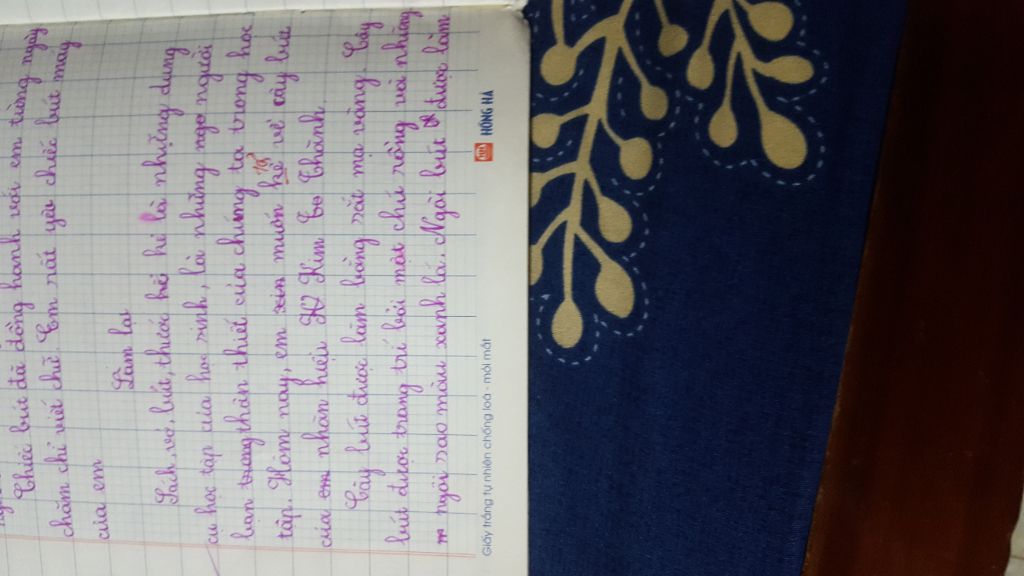 Chiếc bút đã đồng hành với em từng ngày
chăm chỉ viết chữ. Em rất yêu chiếc bút máy
của em
Làm lại
Sách, vở, bút, thước kẻ hẻ là những dụng
cụ học tập của học sinh, là những ngo người
bạn trong thân thiết của chúng ta trong học
tập. Hôm nay, em xin muốn kể tả về cây bút
của em nhãn hiệu Kim Thành.
Cây bút được làm bằng sắt mạ vàng. Cây
bút được trang trí bởi một chú rồng với những
ngôi sao màu xanh lá. Ngòi bút được làm
Giấy trắng tự nhiên chống loá - mỏi mắt
HỒNG HÀ